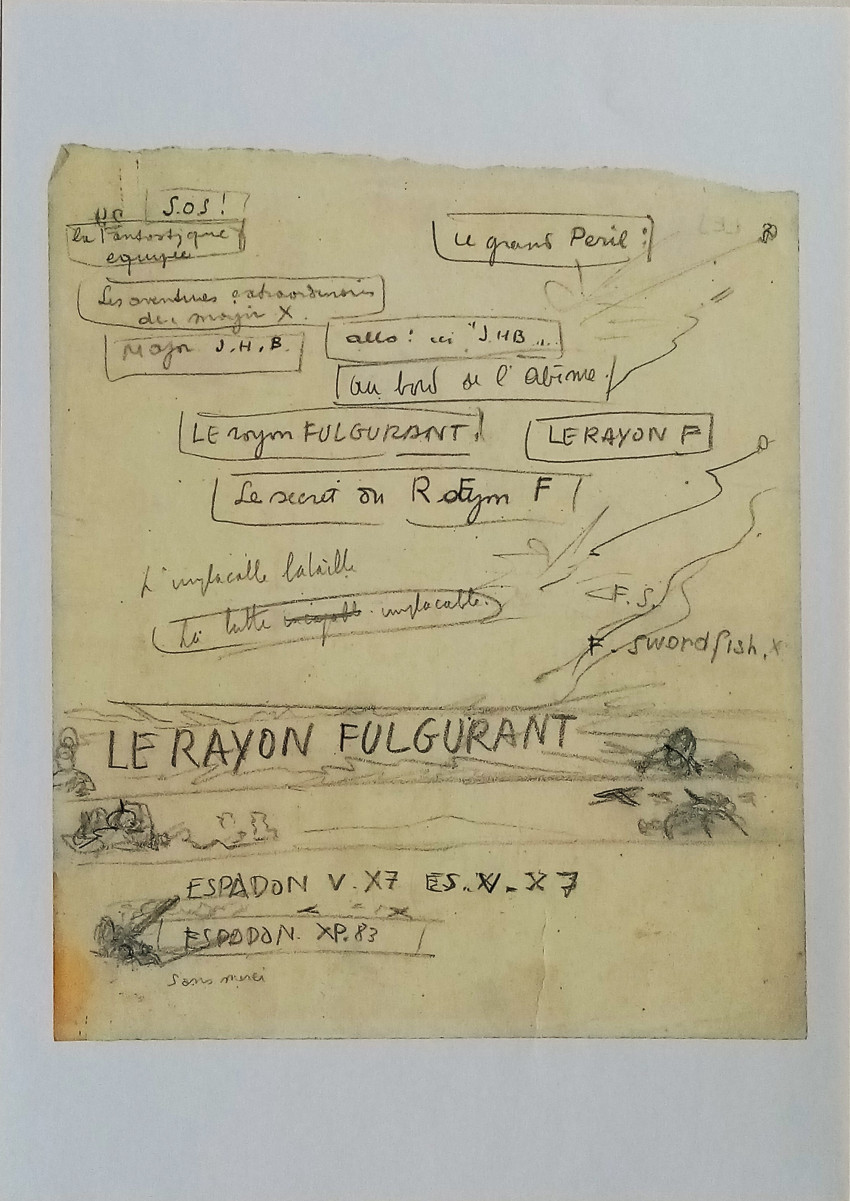 S.O.S!
la Fantastique
equipée
Le grand Peril!
Les aventures extraordinaires
de major X.
Major J.H.B.
allo! ici "J.HB...
au bord de l'abîme!
LE rayon FULGURANT!
LE RAYON F
Le secret du Rayon F!
L'implacable bataille
La lutte implacable.
F.S.
F. swordfish.x
LE RAYON FULGURANT
ESPADON V. X7 ES..V.. X 7
ESPADON. XP.83
Sans merci